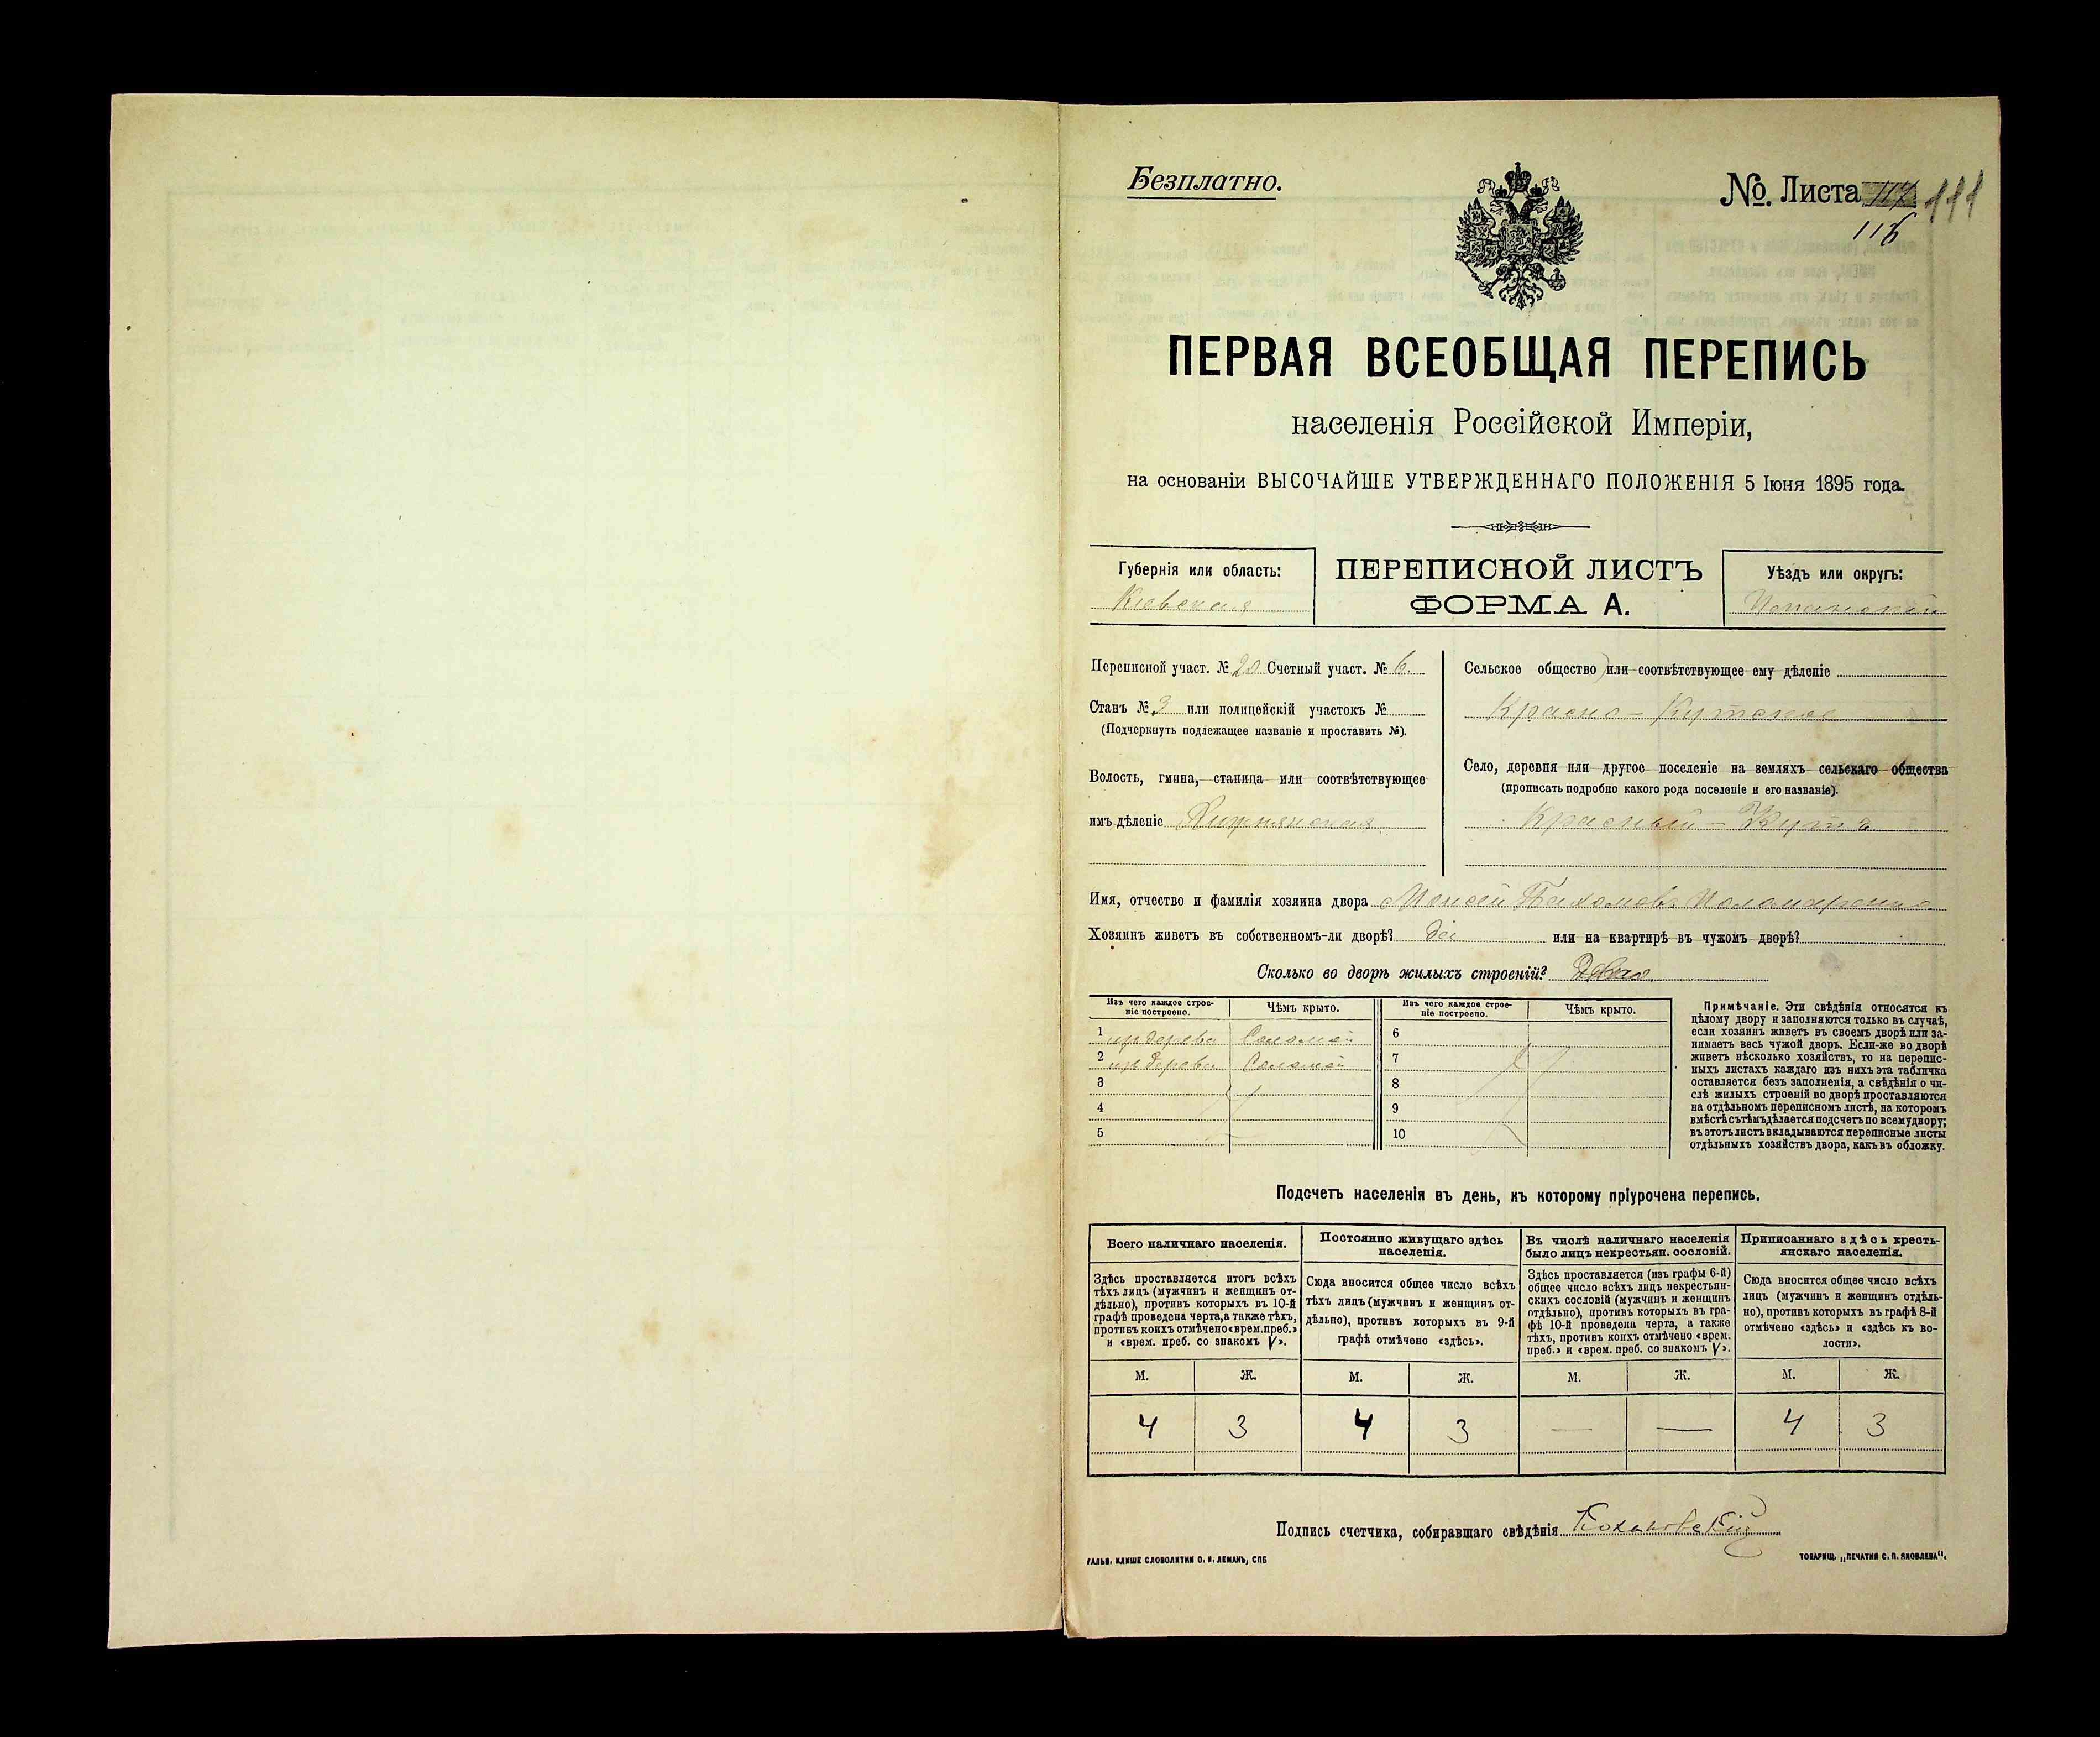 Безплатно.
№. Листа 117 111
116
ПЕРВАЯ ВСЕОБЩАЯ ПЕРЕПИСЬ
населенія Россійской Имперіи,
на основаніи ВЫСОЧАЙШЕ УТВЕРЖДЕННАГО ПОЛОЖЕНІЯ 5 Іюня 1895 года.
Губернія или область:
Кіевская
ПЕРЕПИСНОЙ ЛИСТЪ
ФОРМА А.
Уѣздъ или округъ:
Переписной участ. № 20 Счетный участ. № 6.
Станъ № 3 или полицейскій участокъ №
(Подчеркнуть подлежащее названіе и проставить №).
Волость, гмина, станица или соотвѣтствующее
имъ дѣленіе
Сельское общество или соотвѣтствующее ему дѣленіе
Красно-Кутское
Село, деревня или другое поселеніе на земляхъ сельскаго общества
(прописать подробно какого рода поселеніе и его названіе).
Красный-Кутъ
Имя, отчество и фамилія хозяина двора Моисей Пахомовъ Паламаренко
Хозяинъ живетъ въ собственномъ-ли дворѣ? да или на квартирѣ въ чужомъ дворѣ?
Сколько во дворѣ жилыхъ строеній? Два
Изъ чего каждое строеніе построено. Чѣмъ крыто. Изъ чего каждое строеніе построено. Чѣмъ крыто.
1 изъ дерева Соломой 6
2 изъ дерева Соломой 7
3 8
4 9
5 10
Примѣчаніе. Эти свѣдѣнія относятся къ
цѣлому двору и заполняются только въ случаѣ,
если хозяинъ живетъ въ своемъ дворѣ или за-
нимаетъ весь чужой дворъ. Если-же во дворѣ
живетъ нѣсколько хозяйствъ, то на перепис-
ныхъ листахъ каждаго изъ нихъ эта табличка
оставляется безъ заполненія, а свѣдѣнія о чи-
слѣ жилыхъ строеній во дворѣ проставляются
на отдѣльномъ переписномъ листѣ, на которомъ
вмѣстѣ съ тѣмъ дѣлается подсчетъ по всему двору;
въ этотъ листъ вкладываются переписные листы
отдѣльныхъ хозяйствъ двора, какъ въ обложку.
Подсчетъ населенія въ день, къ которому пріурочена перепись.
Всего наличнаго населенія.
Здѣсь проставляется итогъ всѣхъ
тѣхъ лицъ (мужчинъ и женщинъ от-
дѣльно), противъ которыхъ въ 10-й
графѣ проведена черта, а также тѣхъ,
противъ коихъ отмѣчено «врем. преб.»
и «врем. преб. со знакомъ V».
Постоянно живущаго здѣсь
населенія.
Сюда вносится общее число всѣхъ
тѣхъ лицъ (мужчинъ и женщинъ от-
дѣльно), противъ которыхъ въ 9-й
графѣ отмѣчено «здѣсь».
Въ числѣ наличнаго населенія
было лицъ некрестьян. сословій.
Здѣсь проставляется (изъ графы 6-й)
общее число всѣхъ лицъ некрестьян-
скихъ сословій (мужчинъ и женщинъ
отдѣльно), противъ которыхъ въ гра-
фѣ 10-й проведена черта, а также
тѣхъ, противъ коихъ отмѣчено «врем.
преб.» и «врем. преб. со знакомъ V».
Приписаннаго здѣсь кресть-
янскаго населенія.
Сюда вносится общее число всѣхъ
лицъ (мужчинъ и женщинъ отдѣль-
но), противъ которыхъ въ графѣ 8-й
отмѣчено «здѣсь» и «здѣсь къ во-
лости».
М. Ж. М. Ж. М. Ж. М. Ж.
4 3 4 3 — — 4 3
Подпись счетчика, собиравшаго свѣдѣнія Кохановскій
ГАЛЬВ. КЛИШЕ СЛОВОЛИТНИ О. И. ЛЕМАНЪ, СПБ
ТОВАРИЩ. „ПЕЧАТНЯ С. П. ЯКОВЛЕВА".